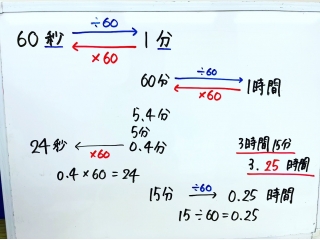 ÷60
60秒 → 1分
← ×60
÷60
60分 → 1時間
← ×60
5.4分
5分
24秒 ← 0.4分
×60
0.4×60=24
3時間15分
3.25時間
÷60
15分 → 0.25時間
15÷60=0.25